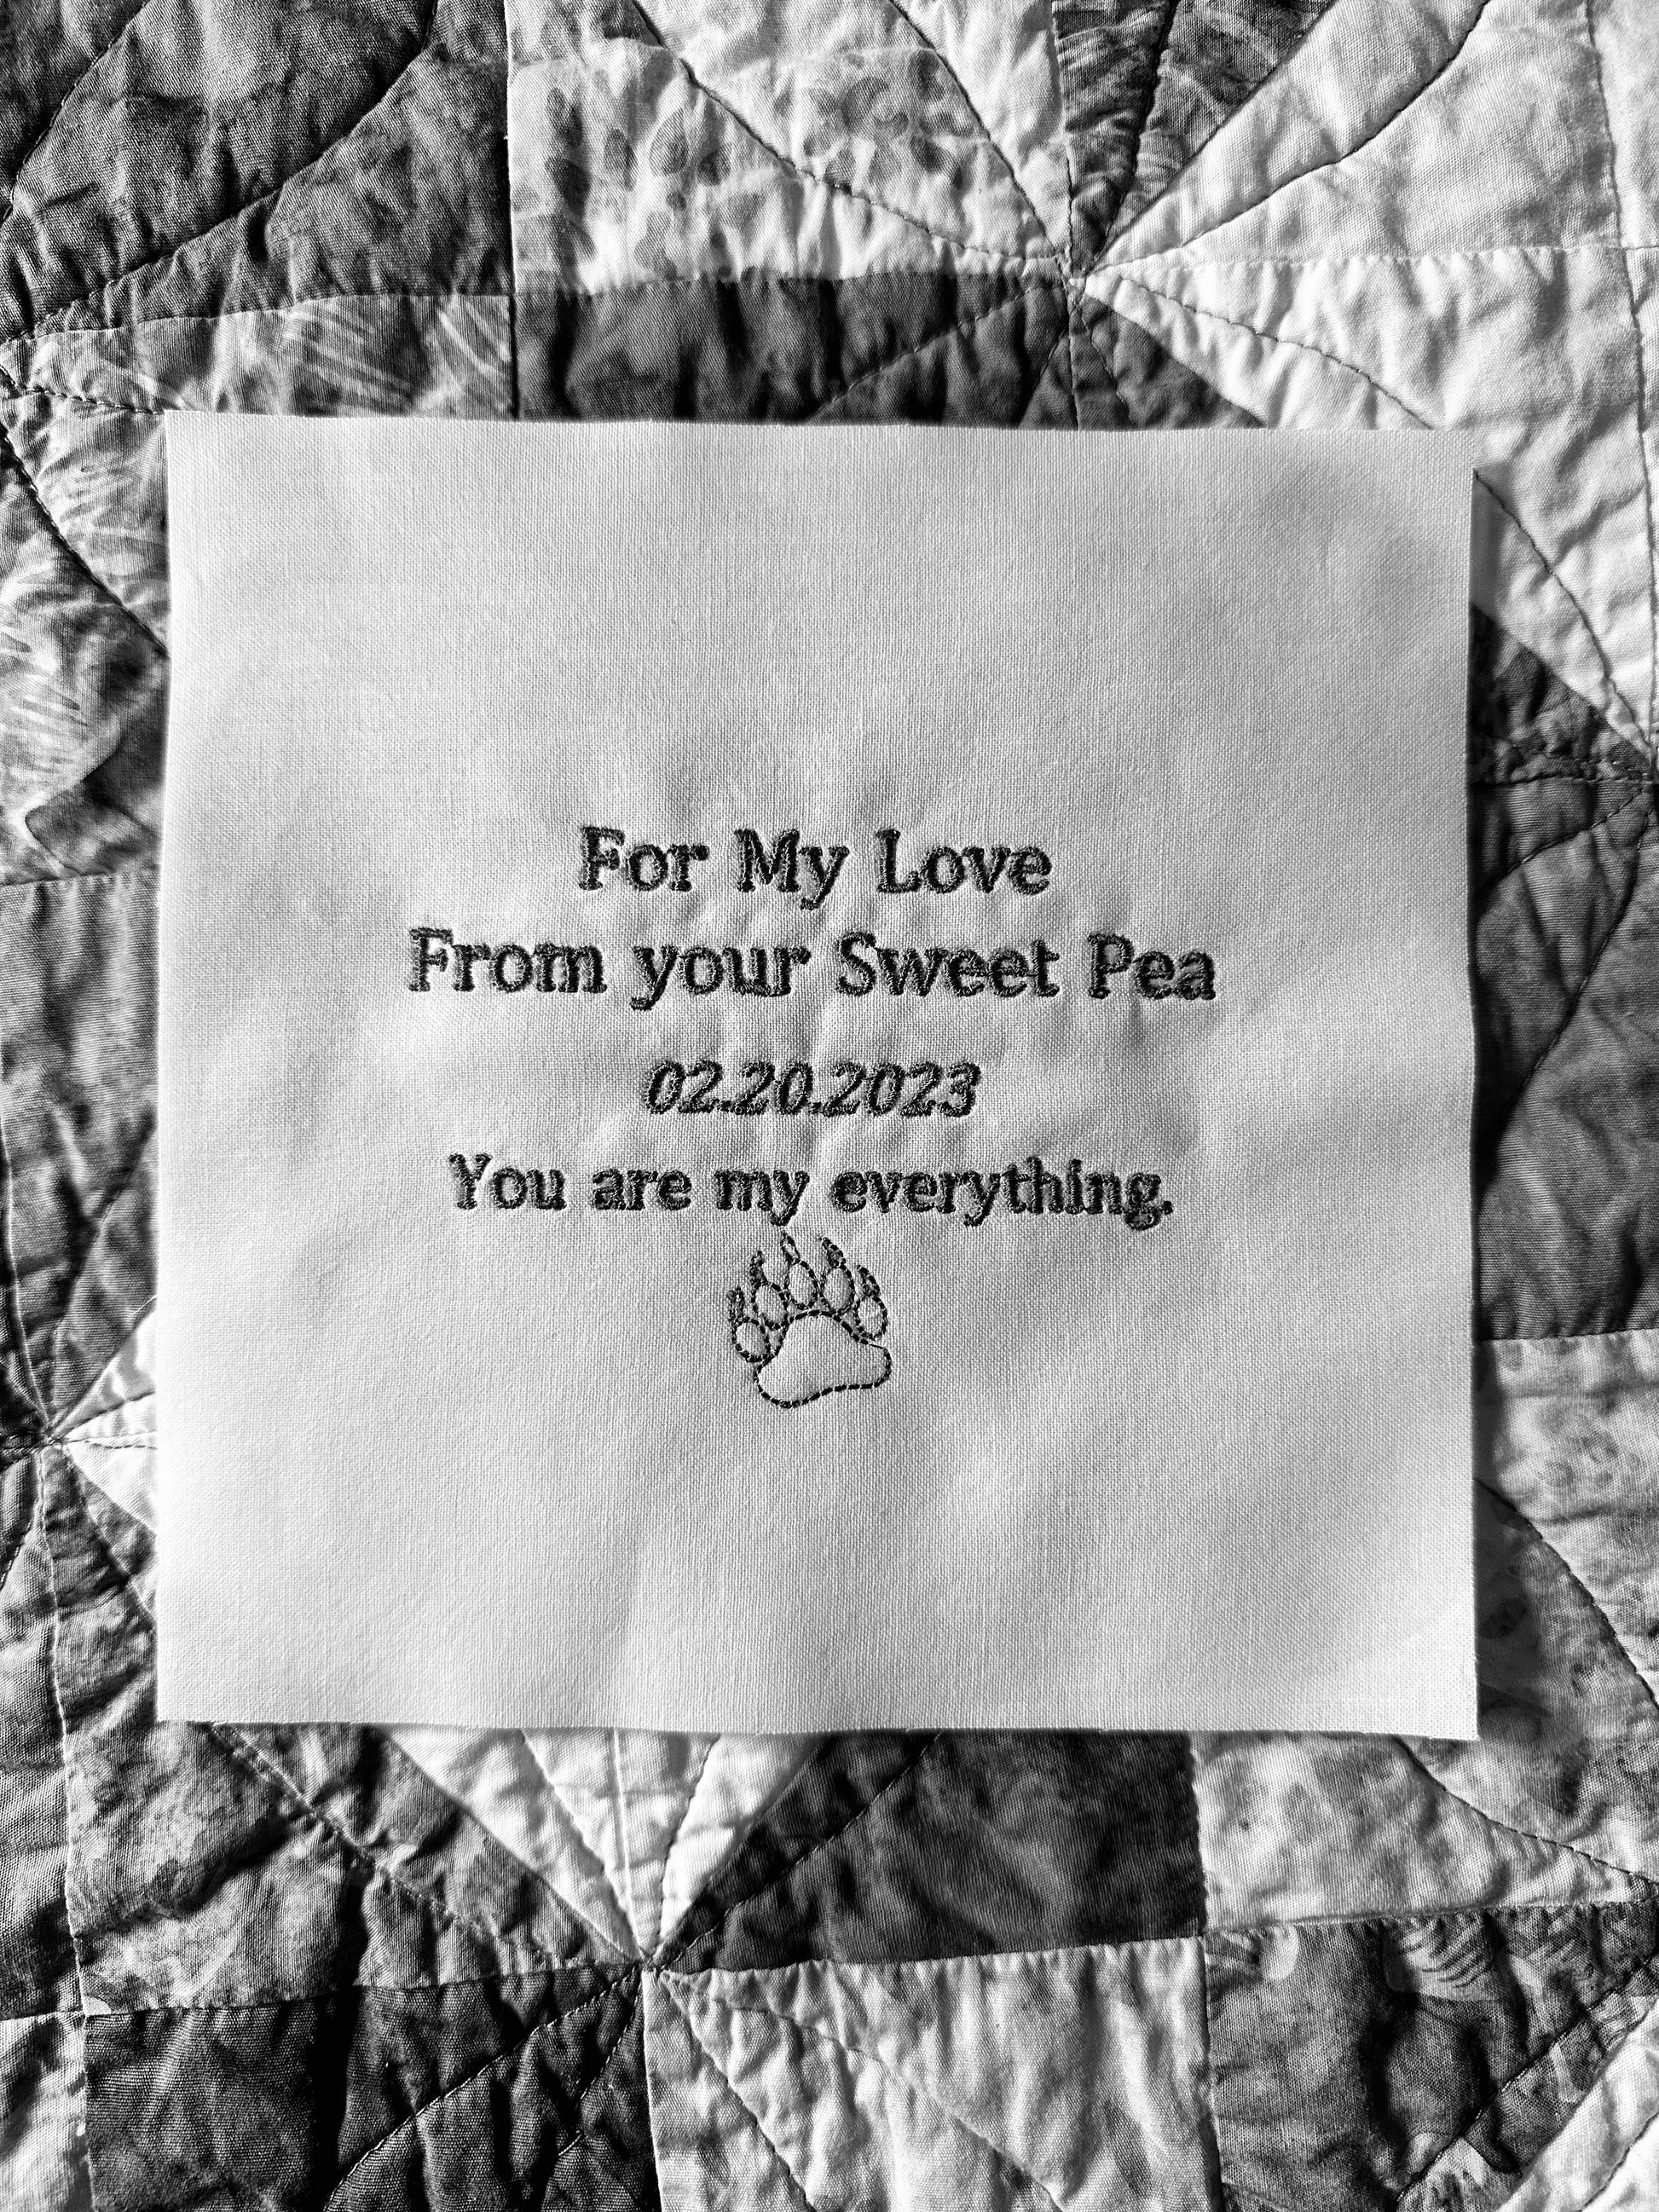 For My Love
From your Sweet Pea
02.20.2023
You are my everything.